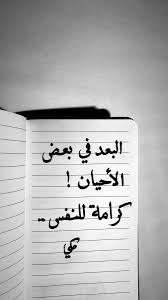 البعد في بعض
الأحيان !
كرامة للنفس ..